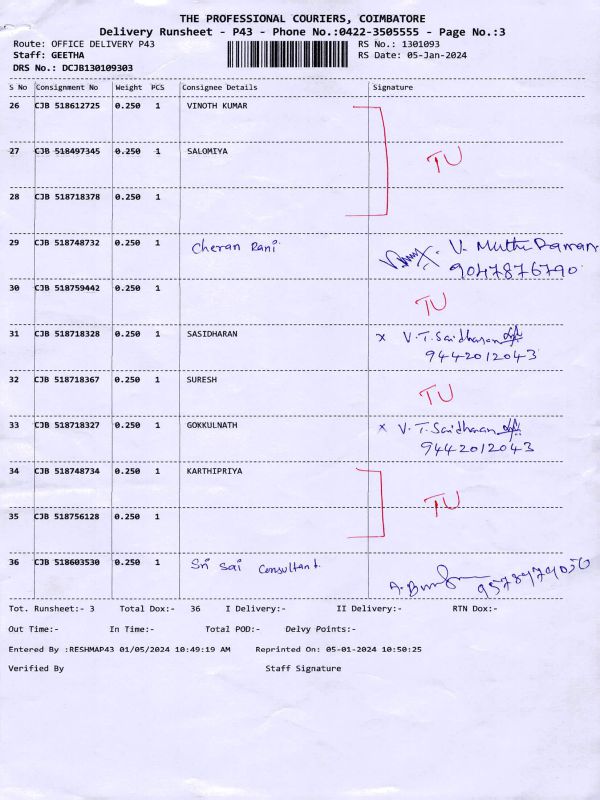 THE PROFESSIONAL COURIERS, COIMBATORE
Delivery Runsheet - P43 - Phone No.:0422-3505555 - Page No.:3
Route: OFFICE DELIVERY P43 RS No.: 1301093
Staff: GEETHA RS Date: 05-Jan-2024
DRS No.: DCJB130109303
S No Consignment No Weight PCS Consignee Details Signature
26 CJB 518612725 0.250 1 VINOTH KUMAR
27 CJB 518497345 0.250 1 SALOMIYA TU
28 CJB 518718378 0.250 1
29 CJB 518748732 0.250 1 Cheran Rani V. Muthu Raman
9047876790
30 CJB 518759442 0.250 1 TU
31 CJB 518718328 0.250 1 SASIDHARAN x V.T. Saidharan
9442012043
32 CJB 518718367 0.250 1 SURESH TU
33 CJB 518718327 0.250 1 GOKKULNATH x V.T. Saidharan
9442012043
34 CJB 518748734 0.250 1 KARTHIPRIYA
TU
35 CJB 518756128 0.250 1
36 CJB 518603530 0.250 1 Sri Sai Consultant
Tot. Runsheet:- 3 Total Dox:- 36 I Delivery:- II Delivery:- RTN Dox:-
Out Time:- In Time:- Total POD:- Delvy Points:-
Entered By :RESHMAP43 01/05/2024 10:49:19 AM Reprinted On: 05-01-2024 10:50:25
Verified By Staff Signature